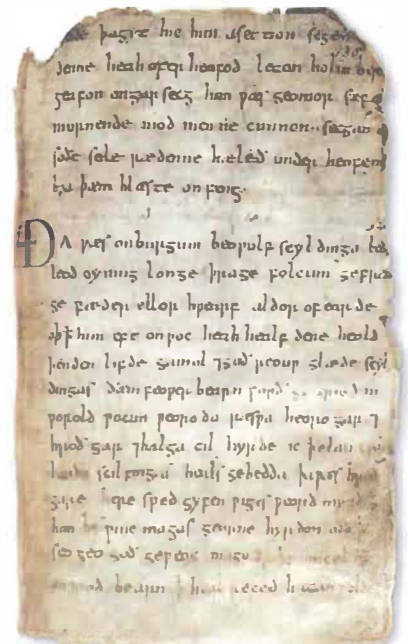 þa gyt hie him asetton segen
denne heah ofer heafod leton holm
geafon on garsecg him ƿæs geomor sefa
murnende mod men ne cunnon secgan
soðe sele rædenne hæleð under heofenum
hƿa þæm hlæste onfeng·
Ða ƿæs on burgum beoƿulf scyldinga
leod cyning longe þrage folcum gefræ
ge fæder ellor hƿearf aldor of earde
oþ ꝥ him eft onƿoc heah healfdene heold
þenden lifde gamol ⁊ guð reouƿ glæde scyl
dingas ðæm feoƿer bearn forð gerimed in
ƿorold ƿocun ƿeoroda ræsƿa heorogar ⁊
hroð gar ⁊ halga til hyrde ic ꝥ elan
scilfingas heals gebedda þa ƿæs
gare here sped gyfen ƿiges ƿeorð mynd
him his ƿine magas georne hyrdon
seo geogoð geƿeox mago micel
on mod bearn ꝥ heal reced hatan